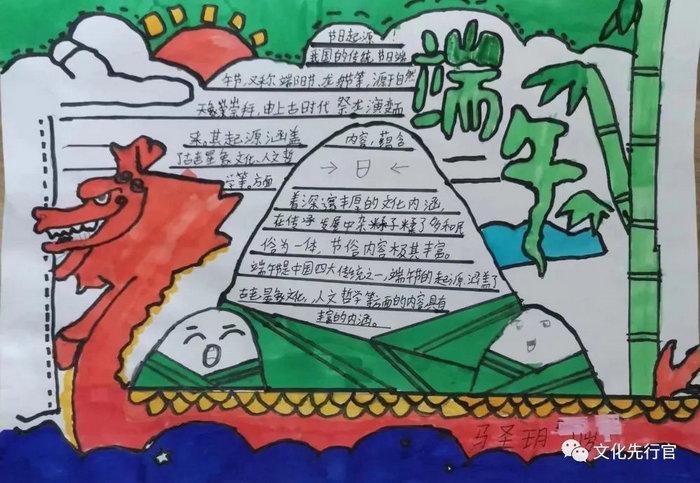 节日起源!
我国的传统节日端
午节,又称端阳节、龙舟节等,源于自然
天象崇拜,由上古时代祭龙演变而
来。其起源涵盖
了古老星象文化、人文哲
学等。方面
端午
内容,蕴含
→ 日 ←
着深邃丰厚的文化内涵
在传承发展中杂糅了多种民
俗为一体,节俗内容极其丰富。
端午节是中国四大传统之一,端午节的起源涵盖了
古老星象文化、人文哲学等方面的内容具有
丰富的内涵。
马圣玥
文化先行官